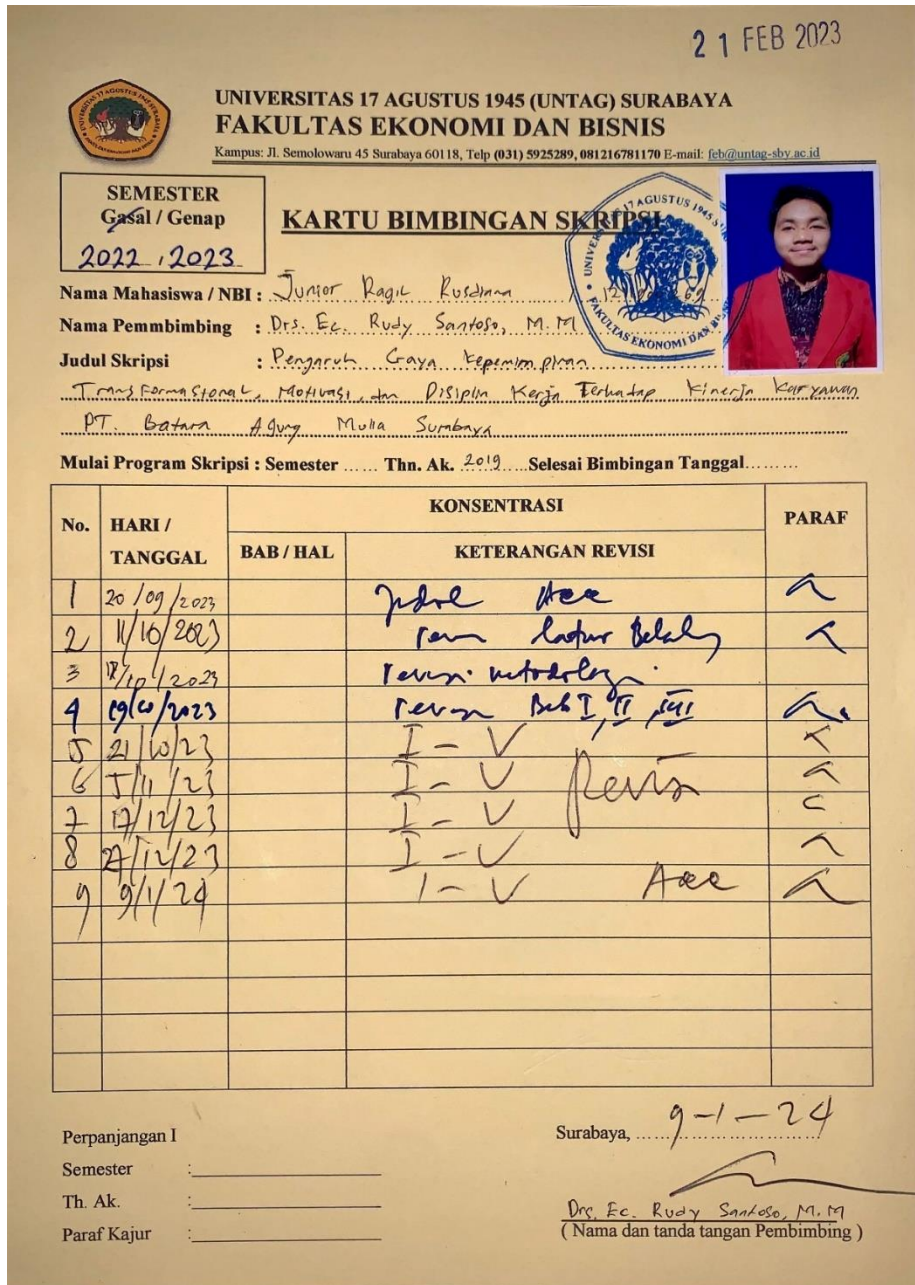 21 FEB 2023
UNIVERSITAS 17 AGUSTUS 1945 (UNTAG) SURABAYA
FAKULTAS EKONOMI DAN BISNIS
Kampus: Jl. Semolowaru 45 Surabaya 60118, Telp (031) 5925289, 081216781170 E-mail: feb@untag-sby.ac.id
SEMESTER
Gasal / Genap
2022 / 2023
KARTU BIMBINGAN SKRIPSI
Nama Mahasiswa / NBI : Junior Ragil Rusdiana /
Nama Pemmbimbing : Drs. Ec. Rudy Santoso, M.M
Judul Skripsi : Pengaruh Gaya Kepemimpinan
Transformasional, Motivasi, dan Disiplin Kerja Terhadap Kinerja Karyawan
PT. Batara Agung Mulia Surabaya
Mulai Program Skripsi : Semester ...... Thn. Ak. 2019 Selesai Bimbingan Tanggal.........
No. HARI / TANGGAL KONSENTRASI PARAF
BAB / HAL KETERANGAN REVISI
1 20/09/2023 Acc
2 11/10/2023
3 18/10/2023 revisi metodologi
4 19/10/2023 revisi Bab I, II, III
5 21/10/23 I - V
6 5/11/23 I - V Revisi
7 17/12/23 I - V
8 27/12/23 I - V
9 9/1/24 I - V Acc
Perpanjangan I
Semester :
Th. Ak. :
Paraf Kajur :
Surabaya, 9-1-24
Drs. Ec. Rudy Santoso, M.M
( Nama dan tanda tangan Pembimbing )